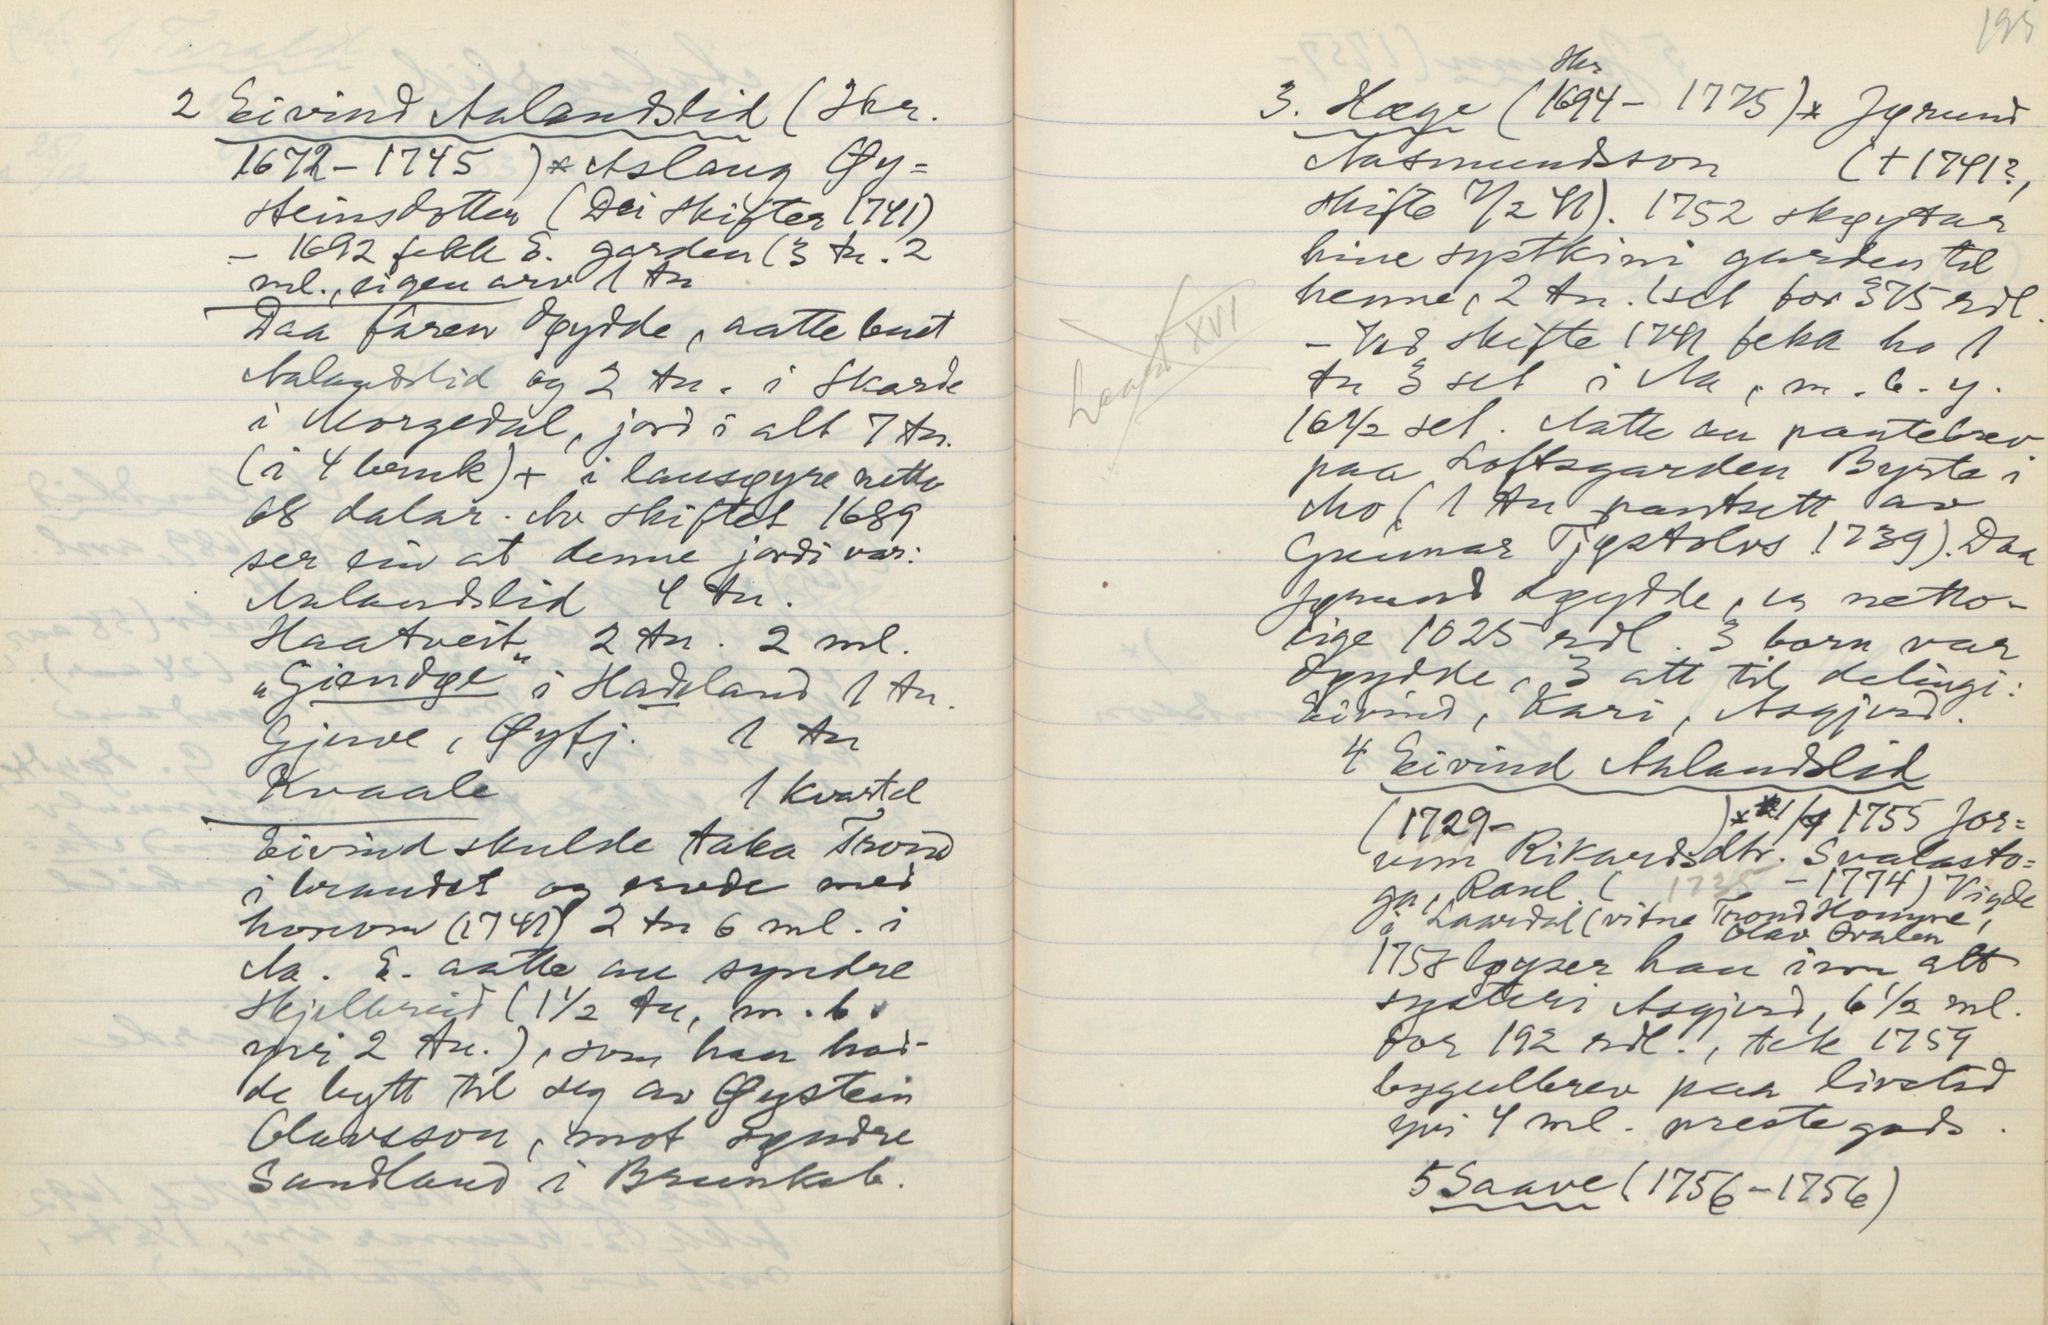 2 Eivind Aalandslid (Skr.
1672 – 1745 ) * Aslaug Øy=
steinsdotter (Dei skifter 1741)
– 1692 fekk E. garden (3 tn. 2
ml., eigen arv 1 tn
Daa faren døydde, aatte buet
Aalandslid og 2 tn. i Skarde
i Morgedal, jord i alt 7 tn.
(i 4 bruk) + i lausøyre netto
68 dalar. Av skiftet 1689
ser ein at denne jordi var:
Aalandslid 4 tn.
Haatveit" 2 tn. 2 ml.
"Giendøe i Hadeland 1 tn.
Gjuve, Øyfj. 1 tn
Kvaale 1 kvartel
Eivind skulde taka Trond
i brandet og ervde med
honom (1741) 2 tn 6 ml. i
Aa. E. aatte au syndre
Skjelbreid (1½ tn, m. b.
yvi 2 tn.), som han had-
de bytt til seg av Øystein
Olavsson, mot syndre
Sandland i Brunkeb.
195
Skr
3. Hæge (1694 – 1775) * Jørund
Aasmundsson († 1741?,
skifte 7/2 41). 1752 skøytar
hine syskini garden til
henne, 2 tn. 1 set for 375 rdl.
– Ved skifte 1741 fekk ho 1
tn 3 set i Aa, m. b. y.
16½ sel. Aatte au pantebrev
paa Loftsgarden Byrte i
Mo (1 tn pantsett av
Gunnar Tjøstolvs 1739). Daa
Jørund døydde, va netto-
eige 1025 rdl. 3 born var
døydde, 3 att til delingi:
Eivind, Kari, Asgjerd.
XVI
4 Eivind Aalandslid
(1729 – ) * 1/9 1755 Jor=
unn Rikardsdtr. Svalasto=
ga, Raul. ( 1735 – 1774) Vigde
i Laardal (vitne Trond Homme,
Olav Kvalen
1758 løyser han inn att
systeri Asgjerd, 6½ ml.
for 192 rdl., tek 1759
bygselbrev paa livstid
yvi 4 ml. prestegods.
5 Saave (1756 – 1756)